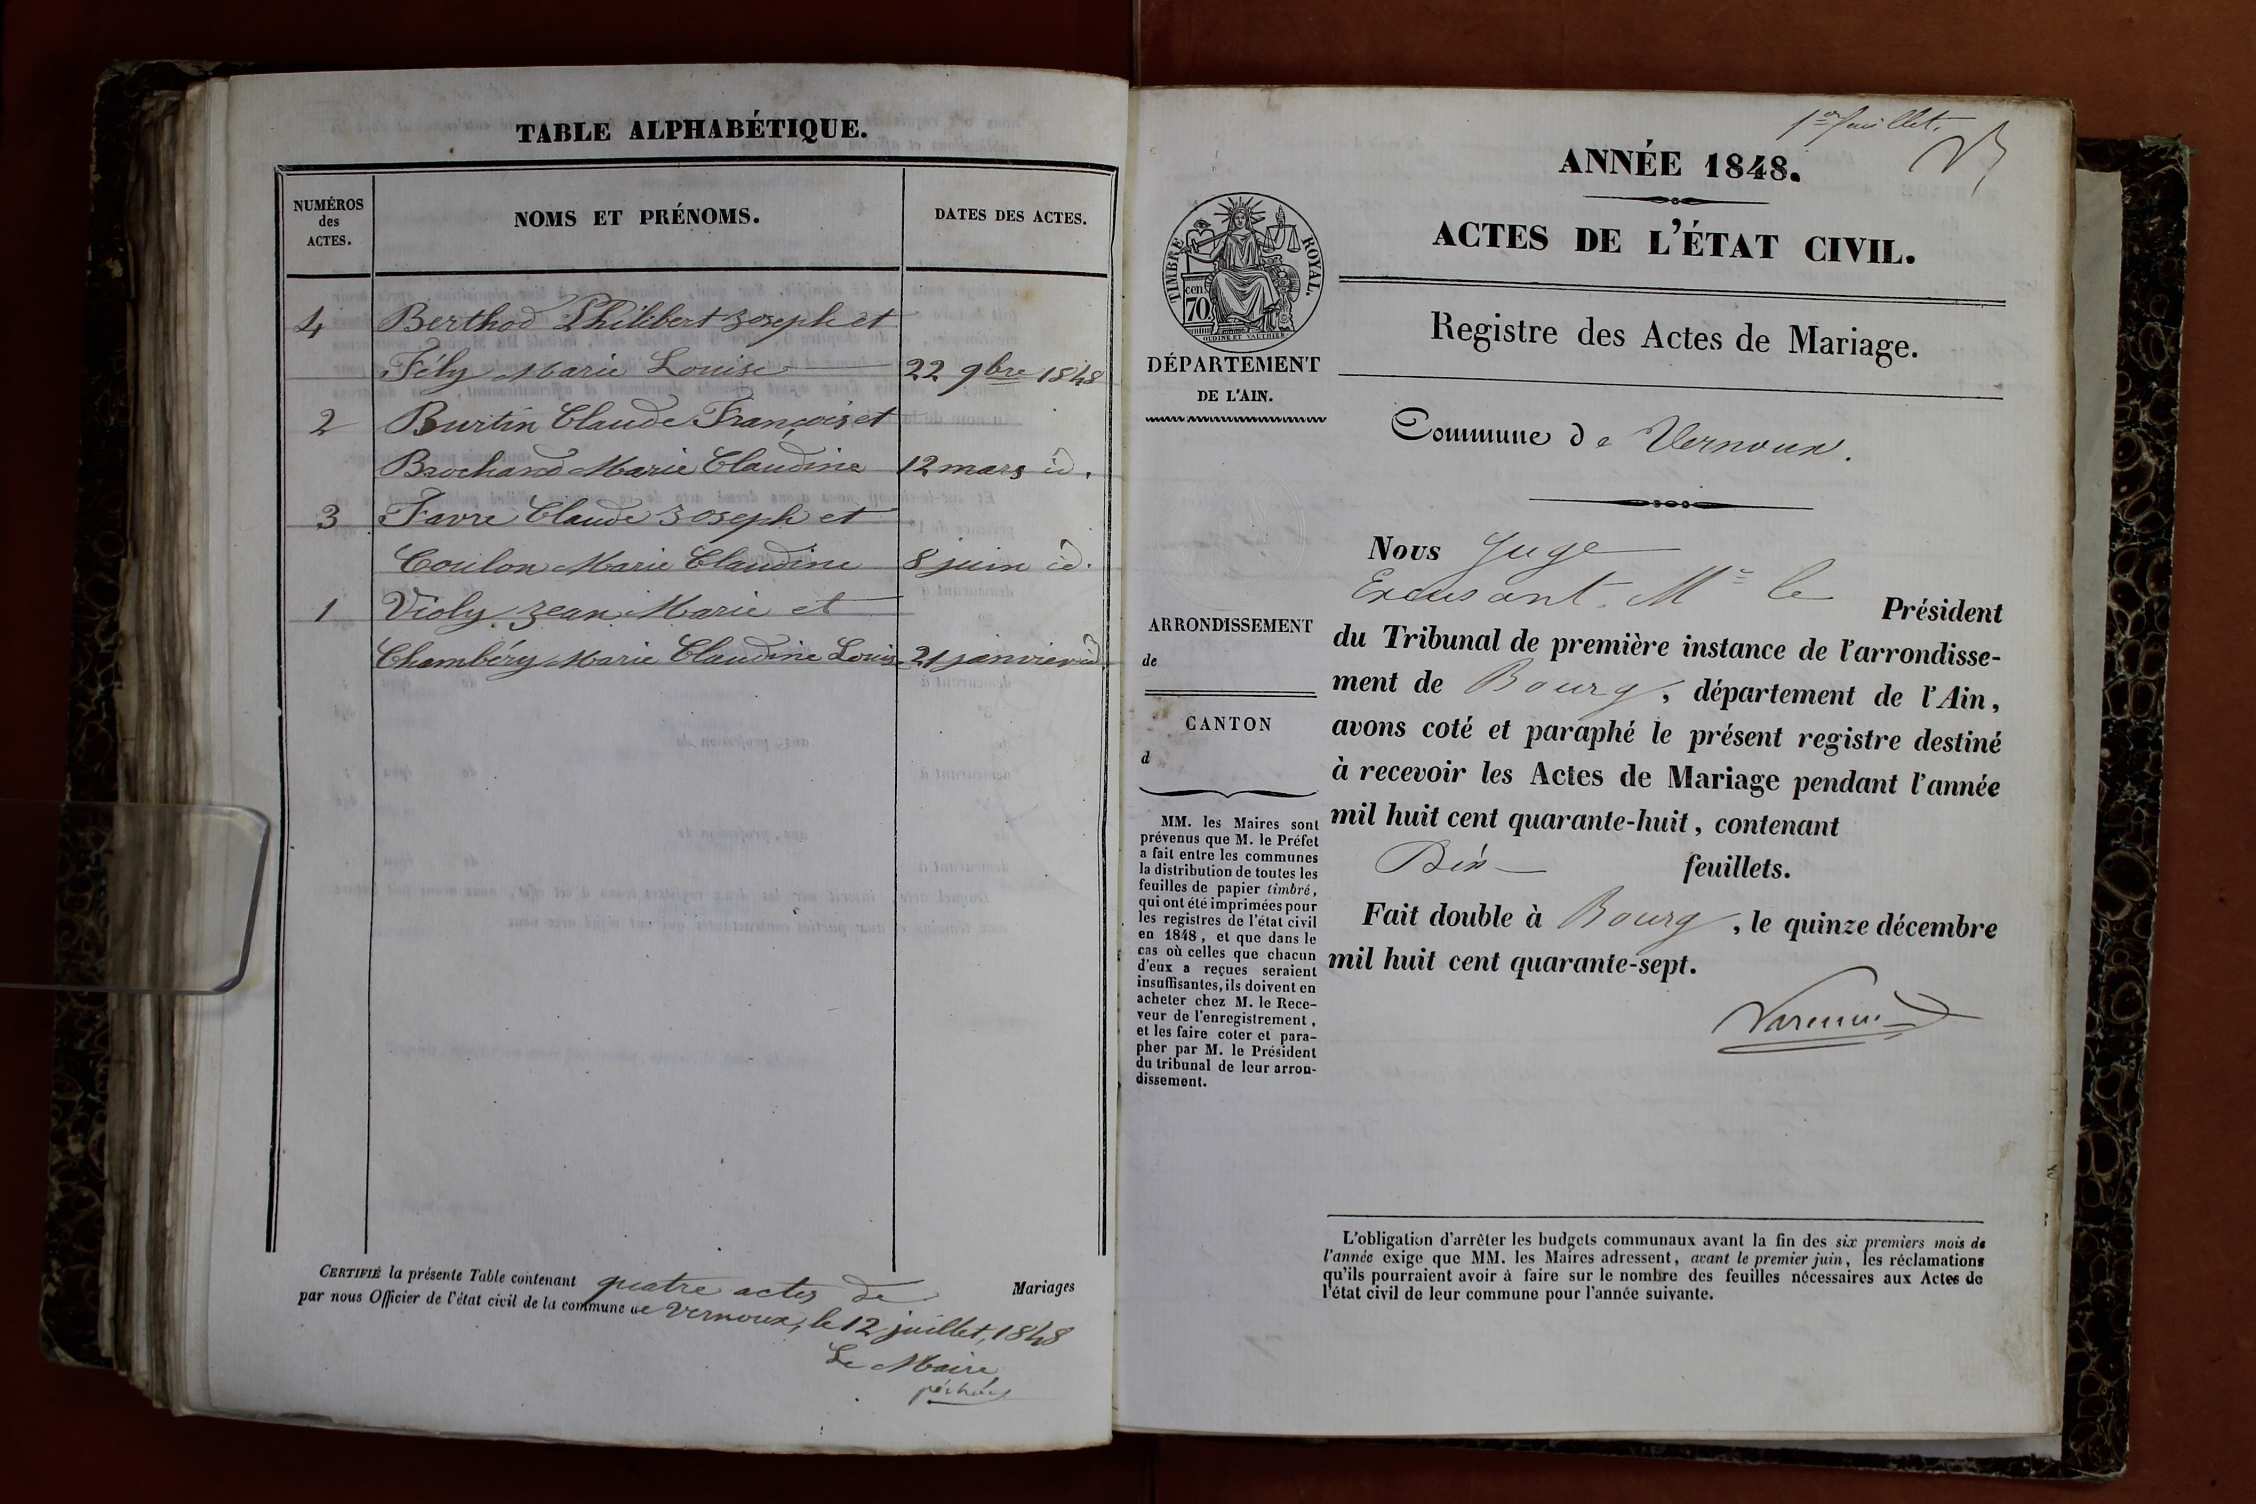 TABLE ALPHABÉTIQUE.
NUMÉROS
des
ACTES.
NOMS ET PRÉNOMS.
DATES DES ACTES.
4 Berthod Philibert Joseph et
Fély Marie Louise 22 9bre 1848
2 Burtin Claude François et
Brochand Marie Claudine 12 mars id.
3 Favre Claude Joseph et
Coulon Marie Claudine 8 juin id.
1 Violy Jean Marie et
Chambéry Marie Claudine Louise 21 janvier id.
CERTIFIÉ la présente Table contenant quatre actes de Mariages
par nous Officier de l'état civil de la commune de Vernoux, le 12 juillet, 1848
Le Maire
1er feuillet.
ANNÉE 1848.
ACTES DE L'ÉTAT CIVIL.
TIMBRE ROYAL.
cen.
70
OUDINE ET VAUTHIER
DÉPARTEMENT
DE L'AIN.
Registre des Actes de Mariage.
Commune de Vernoux.
ARRONDISSEMENT
de
CANTON
d
MM. les Maires sont
prévenus que M. le Préfet
a fait entre les communes
la distribution de toutes les
feuilles de papier timbré,
qui ont été imprimées pour
les registres de l'état civil
en 1848, et que dans le
cas où celles que chacun
d'eux a reçues seraient
insuffisantes, ils doivent en
acheter chez M. le Rece-
veur de l'enregistrement,
et les faire coter et para-
pher par M. le Président
du tribunal de leur arron-
dissement.
Nous Juge
Excusant Mr le Président
du Tribunal de première instance de l'arrondisse-
ment de Bourg, département de l'Ain,
avons coté et paraphé le présent registre destiné
à recevoir les Actes de Mariage pendant l'année
mil huit cent quarante-huit, contenant
Dix feuillets.
Fait double à Bourg, le quinze décembre
mil huit cent quarante-sept.
L'obligation d'arrêter les budgets communaux avant la fin des six premiers mois de
l'année exige que MM. les Maires adressent, avant le premier juin, les réclamations
qu'ils pourraient avoir à faire sur le nombre des feuilles nécessaires aux Actes de
l'état civil de leur commune pour l'année suivante.